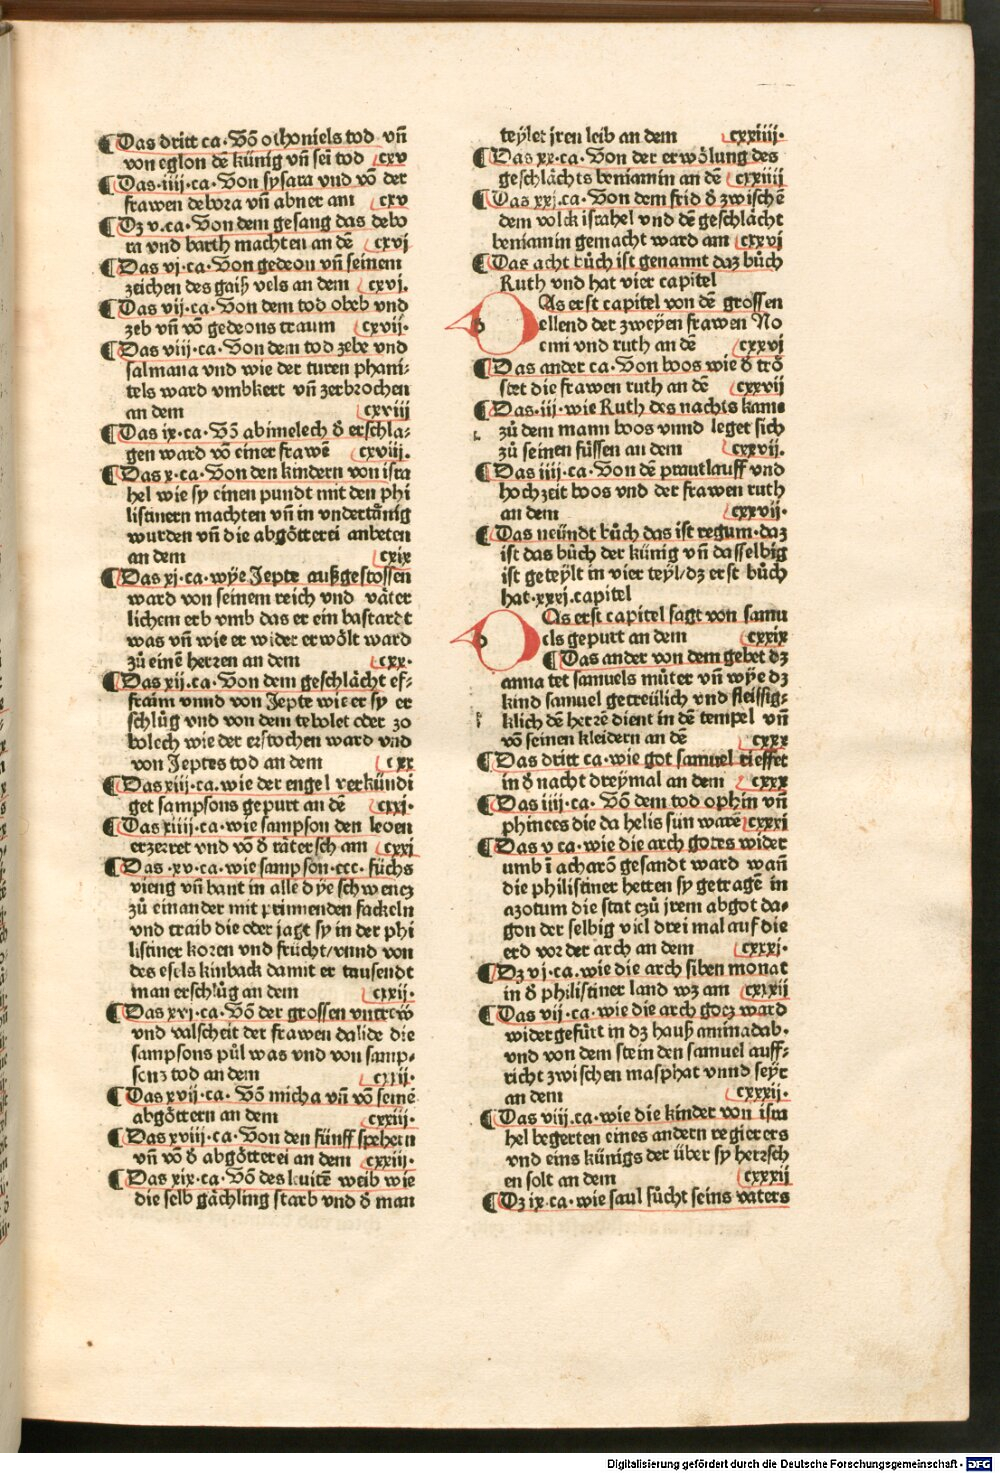 ¶Das dritt ca. Võ othoniels tod vñ
von eglon dē künig vñ sei tod cxv
¶Das .iiij. ca. Von sysara vnd võ der
frawen debora vñ abner am cxv
¶Dz v. ca. Von dem gesang das debo
ra vnd barth machten an dē cxvj
¶Das vj. ca. Von gedeon vñ seinem
zeichen des gaiß vels an dem cxvj.
¶Das vij. ca. Von dem tod obeb vnd
zeb vñ võ gedeons traum cxvij.
¶Das viij. ca. Von dem tod zebe vnd
salmana vnd wie der turen phani⸗
tels ward vmbkert vñ zerbrochen
an dem cxviij
¶Das ix. ca. Võ abimelech d̄ erschla⸗
gen ward võ einer frawē cxviij.
¶Das x. ca. Von den kindern von isra
hel wie sy einen pundt mit den phi
listinern machten vñ in vndertånig
wurden vñ die abgötterei anbeten
an dem cxix
¶Das xj. ca. wÿe Jepte außgestossen
ward von seinem reich vnd våter
lichem erb vmb das er ein bastardt
was vñ wie er wider erwölt ward
zů einē herren an dem cxx.
¶Das xij. ca. Von dem geschlåcht ef⸗
fraim vnnd von Jepte wie er sy er
schlůg vnd von dem tebolet oder zo
bolech wie der erstochen ward vnd
von Jeptes tod an dem cxx
¶Das xiij. ca. wie der engel verkündi
get sampsons gepurt an dē cxxj.
¶Das xiiij. ca. wie sampson den leoen
erzerret vnd võ d̄ råtersch am cxxj
¶Das .xv. ca. wie sampson .ccc. füchs
vieng vñ bant in alle dÿe schwencz
zů einander mit prinnenden fackeln
vnd traib die oder jagt sy in der phi
listiner koren vnd frücht/vnnd von
des esels kinback damit er tausendt
man erschlůg an dem cxxij.
¶Das xvj. ca. Võ der grossen vntrew̃
vnd valscheit der frawen dalide die
sampsons půl was vnd von samp⸗
sons tod an dem cxxij.
¶Das xvij. ca. Võ micha vñ võ seinē
abgöttern an dem cxxiij.
¶Das xviij. ca. Von den fünff spehern
vñ võ d̄ abgötterei an dem cxxiij.
¶Das xix. ca. Võ des leuitē weib wie
die selb gåchling starb vnd d̄ man
teylet jren leib an dem cxxiiij.
¶Das xx. ca. Von der erwölung des
geschlåchts beniamin an dē cxxiiij
¶Das xxj. ca. Von dem frid d̄ zwischē
dem volck israhel vnd dē geschlåcht
beniamin gemacht ward am cxxvj
¶Das acht bůch ist genannt daz bůch
Ruth vnd hat vier capitel
DAs erst capitel von dē grossen
ellend der zweyen frawen No
emi vnd ruth an dē cxxvj
¶Das ander ca. Von boos wie d̄ trõ
stet die frawen ruth an dē cxxvij
¶Das .iij. wie Ruth des nachts kame
zů dem mann boos vnnd leget sich
zů seinen füssen an dem cxxvij.
¶Das iiij. ca. Von dē prautlauff vnd
hochzeit boos vnd der frawen ruth
an dem cxxvij.
¶Das neündt bůch das ist regum. daz
ist das bůch der künig vñ dasselbig
ist geteylt in vier teyl/dz erst bůch
hat .xxxj. capitel
DAs erst capitel sagt von samu
els gepurt an dem cxxix
¶Das ander von dem gebet dz
anna tet samuels můter vñ wÿe dz
kind samuel getreülich vnd fleissig⸗
klich dē herrē dient in dē tempel vñ
võ seinen kleidern an dē cxxx
¶Das dritt ca. wie got samuel rieffet
in d̄ nacht dreÿmal an dem cxxx
¶Das iiij. ca. Võ dem tod ophin vñ
phinees die da helis sün warē cxxxj
¶Das v ca. wie die arch gotes wider
umb ī acharõ gesandt ward wañ
die philistiner hetten sy getragē in
azotum die stat czů jrem abgot da⸗
gon der selbig viel drei mal auf die
erd vor der arch an dem cxxxj.
¶Dz vj. ca. wie die arch siben monat
in d̄ philistiner land wz am cxxxij
¶Das vij. ca. wie die arch gotz ward
widergefürt in dz hauß aminadab.
vnd von dem stein den samuel auff⸗
richt zwischen masphat vnnd seyr
an dem cxxxij.
¶Das viij. ca. wie die kinder von isra
hel begerten eines andern regierers
vnd eins künigs der über sy herrsch
en solt an dem cxxxij
¶Dz ix. ca. wie saul sůcht seins vaters
Digitalisierung gefördert durch die Deutsche Forschungsgemeinschaft - DFG